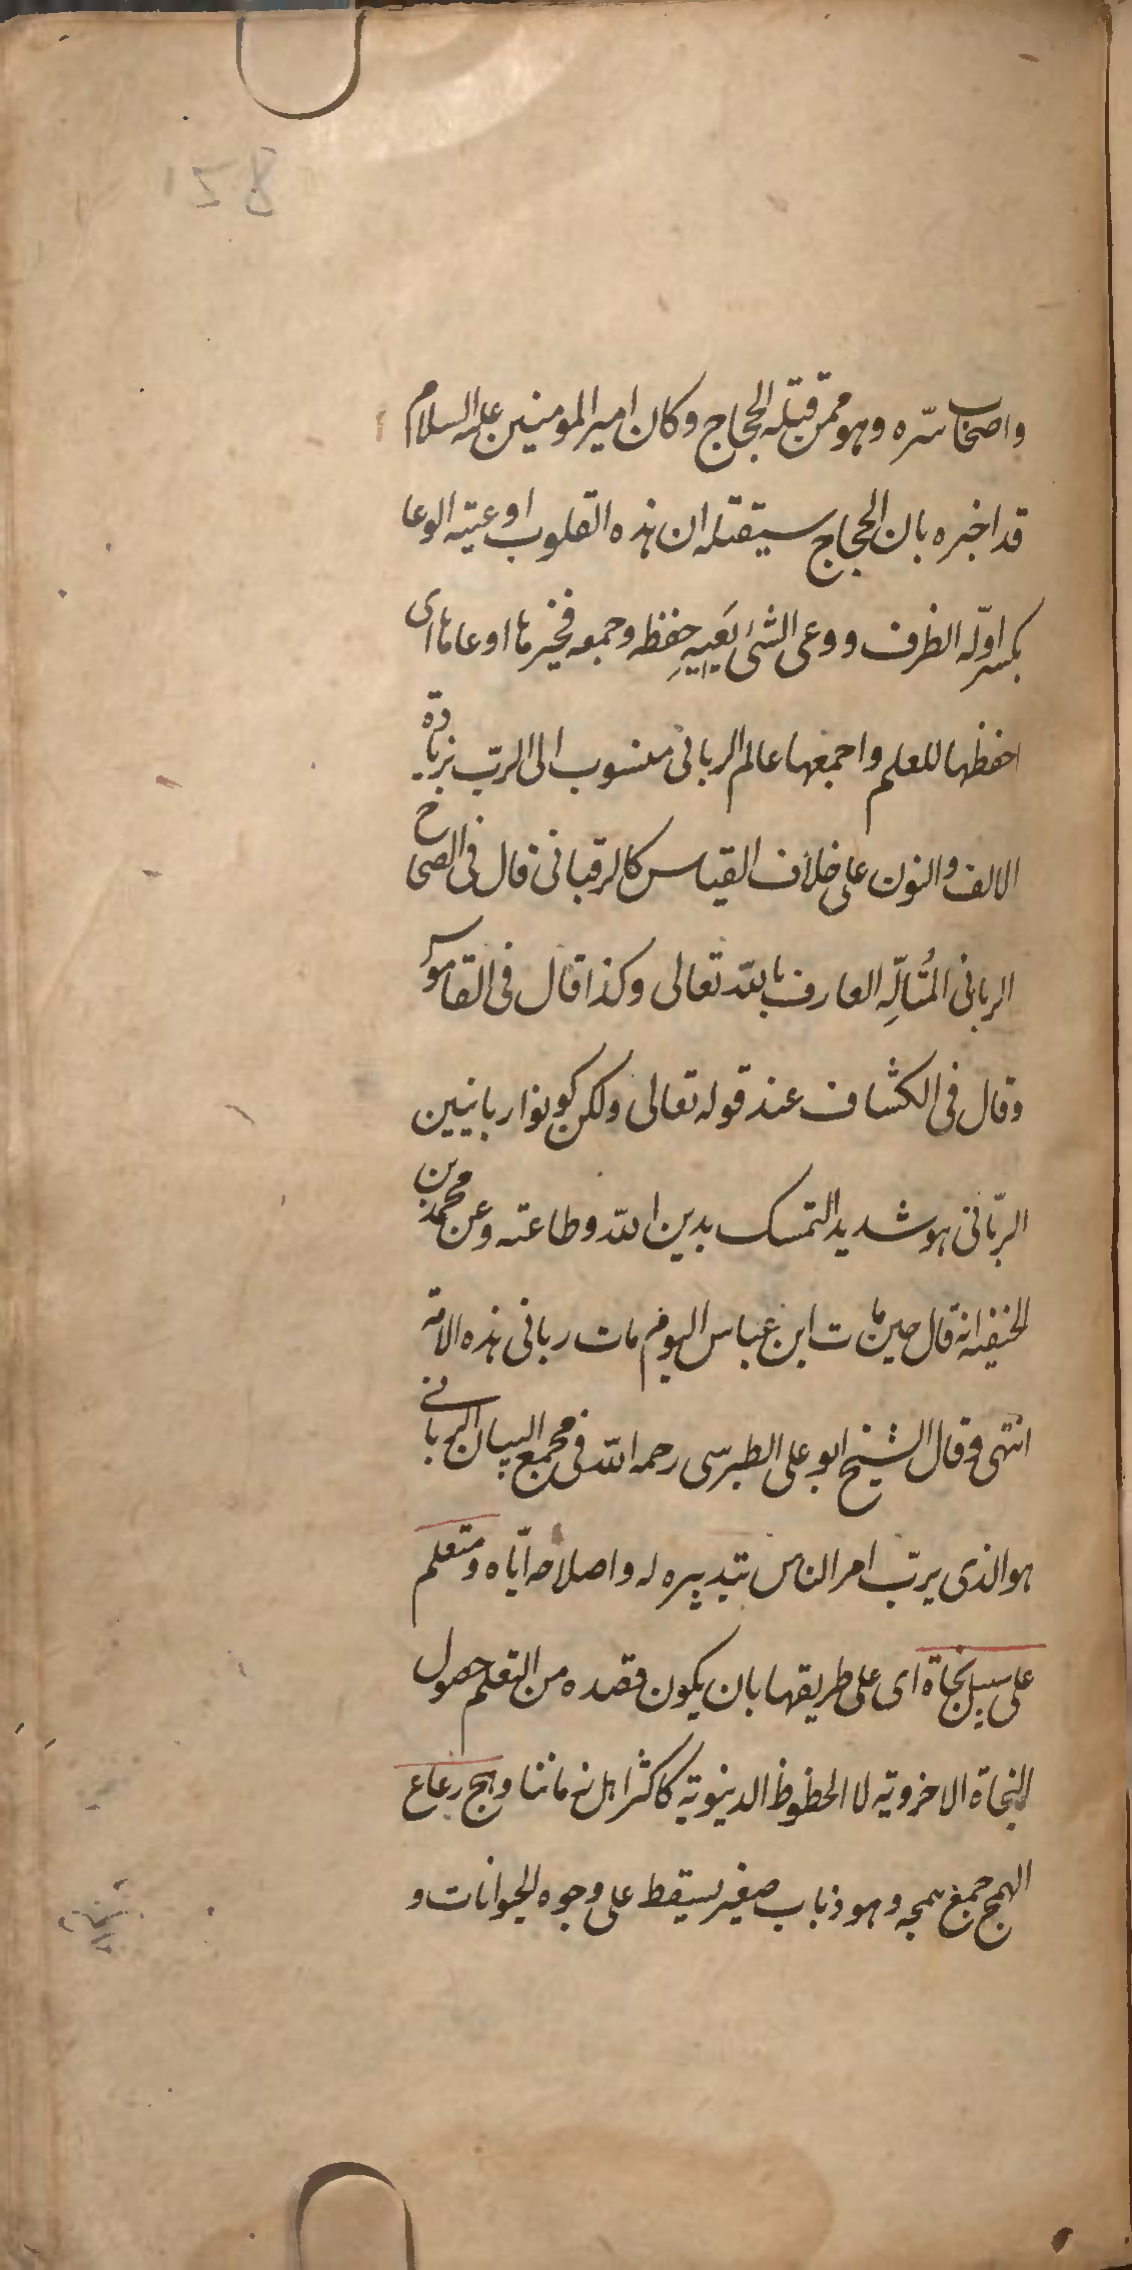 158
واصحاب سرّه وهو ممن قتله الحجاج وكان امير المومنين عليه السلام
قد اخبره بان الحجاج سيقتله ان هذه القلوب اوعيته الوعا
بكسر اوّله الظرف ووعى الشئ يَعيهِ حفظه وجمعه فخيرها اوعاها اى
احفظها للعلم واجمعها عالم الربانى منسوب الى الربّ بزيادة
الالف والنون على خلاف القياس كالرقبانى قال فى الصحاح
الربانى المُتألِّه العارف بالله تعالى وكذا قال فى القاموس
وقال فى الكشاف عند قوله تعالى ولكن كونوا ربانيين
الربّانى هو شديد التمسك بدين الله وطاعته وعن محمد بن
الحنفيه انه قال حين مات ابن عباس اليوم مات ربانى هذه الامة
انتهى وقال الشيخ ابو على الطبرسى رحمه الله فى مجمع البيان الربانى
هو الذى يربّ امر الناس بتدبيره له واصلاحه ايّاه ومتعلم
على سبيل نجاة اى على طريقها بان يكون قصده من التعلم حصول
النجاة الاخروية لا الحظوظ الدنيوية كاكثر اهل زماننا وهمج رعاع
الهمج جمع همجه وهو ذباب صغير يسقط على وجوه الحيوانات و